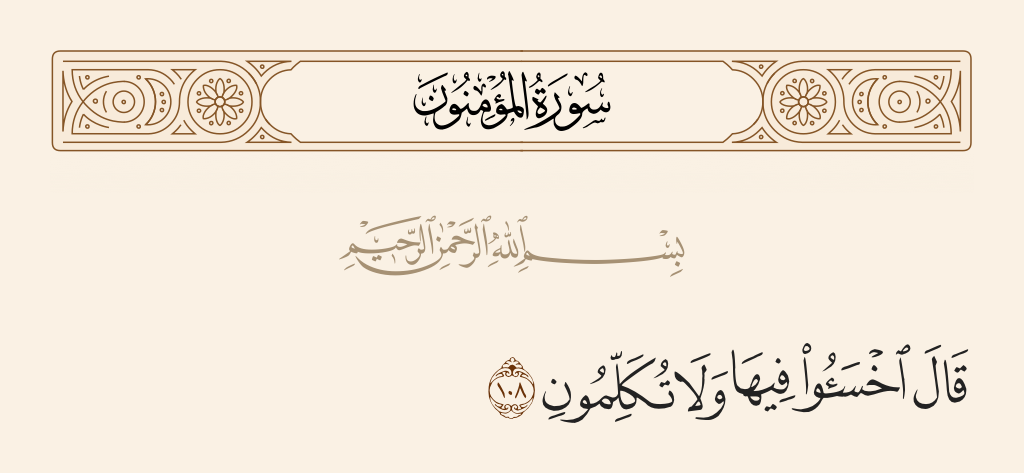 سُورَةُ المُؤْمِنُونَ
بِسْمِ ٱللَّهِ ٱلرَّحْمَٰنِ ٱلرَّحِيمِ
قَالَ ٱخْسَـُٔوا۟ فِيهَا وَلَا تُكَلِّمُونِ ١٠٨